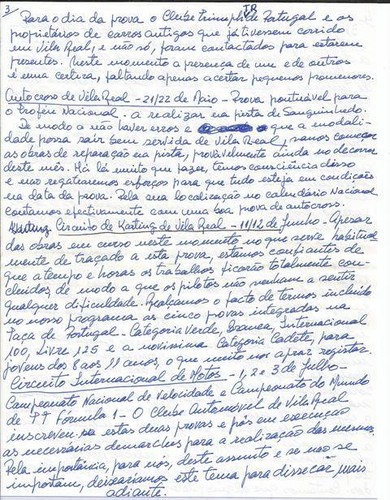 3/ IR
Para o dia da prova o Clube Triumph de Portugal e os
proprietários de carros antigos que já tivessem corrido
em Vila Real, e não só, foram contactados para estarem
presentes. Neste momento a presença de um e de outros
é uma certeza, faltando apenas acertar pequenos promenores.
Autocross de Vila Real - 21/22 de Maio - Prova pontuável para
o troféu Nacional. a realizar na pista de Sanguinhedo.
De modo a não haver erros e que a modali-
dade possa sair bem servida de Vila Real, vamos começar
as obras de reparação na pista, provavelmente ainda no decorrer
deste mês. Há lá muito que fazer, temos consciência disso
e não regatearemos esforços para que tudo esteja em condições
na data da prova. Pela sua localização no calendário Nacional
contamos efectivamente com uma boa prova de autocross.
Circuito de Karting de Vila Real - 11/12 de Junho - Apesar
das obras em curso neste momento no que serve habitual
mente de traçado a esta prova, estamos confiantes de
que a tempo e horas os trabalhos ficarão totalmente con-
cluidos, de modo a que os pilotos não venham a sentir
qualquer dificuldade. Realçamos o facto de termos incluido
no nosso programa as cinco provas integradas na
Taça de Portugal - Categoria Verde, Branca, Internacional
100, Livre 125 e a novissima Categoria Cadete, para
jovens dos 8 aos 11 anos, o que muito nos apraz registar.
Circuito Internacional de Motos - 1, 2 e 3 de Julho -
Campeonato Nacional de Velocidade e Campeonato do Mundo
de TT Fórmula 1 - O Clube Automóvel de Vila Real
inscreveu estas duas provas e pôs em execução
as necessárias demarches para a realização das mesmas.
Pela importância, para nós, deste assunto e se não se
importam, deixariamos este tema para dissecar mais
adiante.